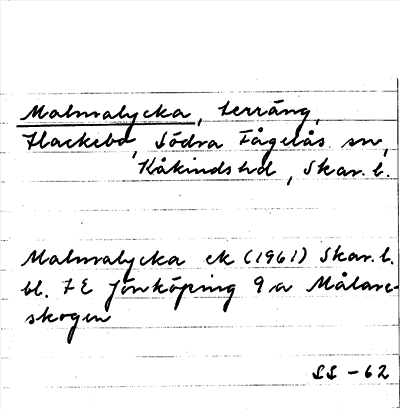 Malmalycka, terräng,
Hackebo, Södra Fågelås sn,
Kåkinds hd, Skar. l.
Malmalycka ek (1961) Skar. l.
bl. 7E Jönköping 9a Målare-
skogen
SS - 62